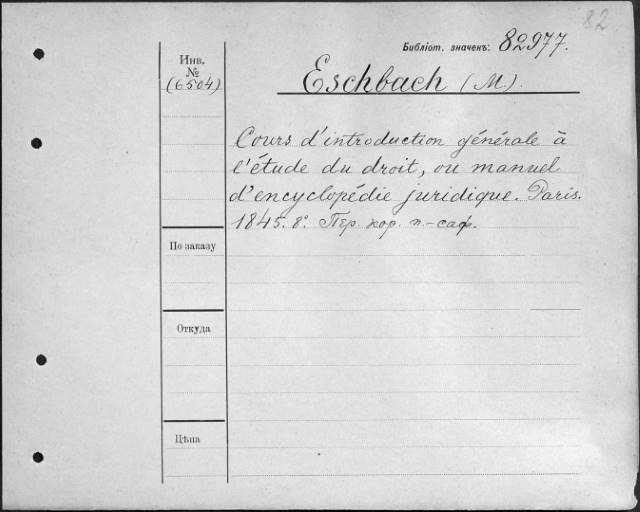 82
Библіот. значекъ: 82977.
Инв.
№
(6504)
Eschbach (M).
Cours d'introduction générale à
l'étude du droit, ou manuel
d'encyclopédie juridique. Paris.
1845. 8°. Пер. кор. п.-саф.
По заказу
Откуда
Цѣна